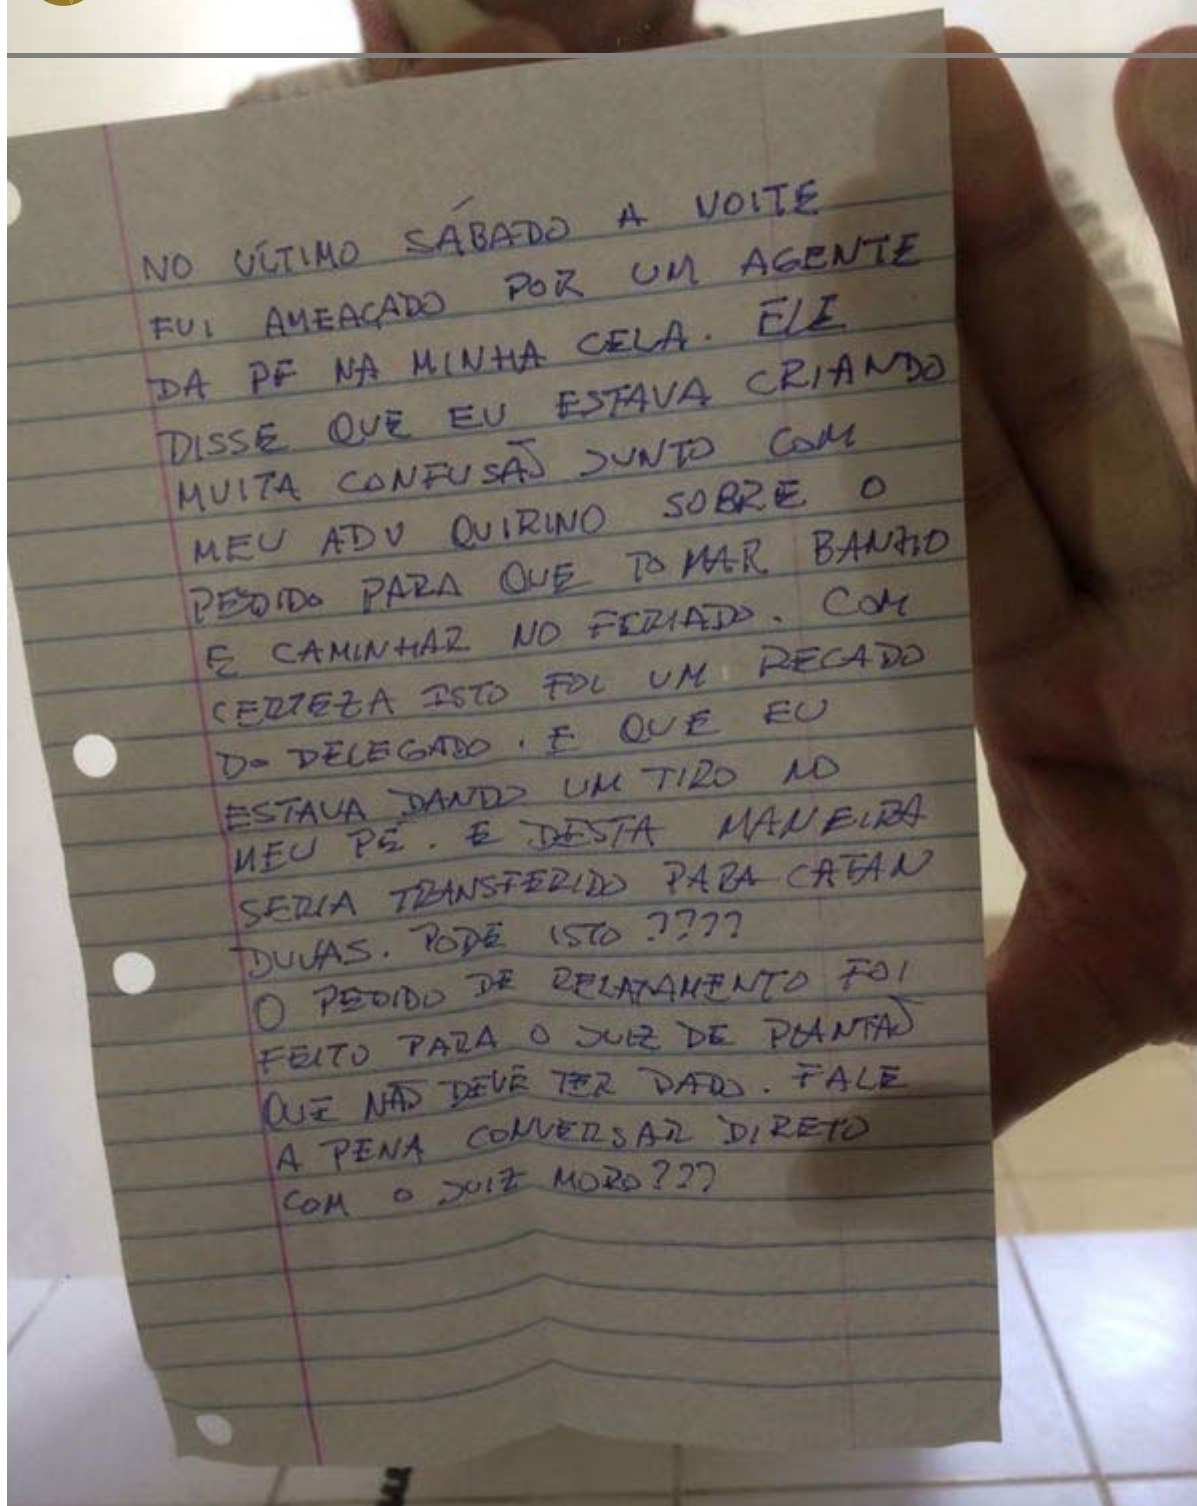 NO ÚLTIMO SÁBADO A NOITE
FUI AMEAÇADO POR UM AGENTE
DA PF NA MINHA CELA. ELE
DISSE QUE EU ESTAVA CRIANDO
MUITA CONFUSÃO JUNTO COM
MEU ADV QUIRINO SOBRE O
PEDIDO PARA QUE TOMAR BANHO
E CAMINHAR NO FERIADO. COM
CERTEZA ISTO FOI UM RECADO
DO DELEGADO. E QUE EU
ESTAVA DANDO UM TIRO NO
MEU PÉ. E DESTA MANEIRA
SERIA TRANSFERIDO PARA CATAN
DUVAS. PODE ISTO ????
O PEDIDO DE RELAXAMENTO FOI
FEITO PARA O JUIZ DE PLANTÃO
QUE NÃO DEVE TER DADO. FALE
A PENA CONVERSAR DIRETO
COM O JUIZ MORO???